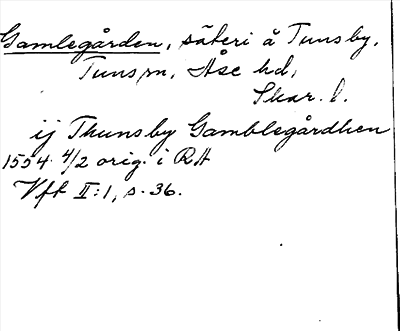 Gamlegården, säteri å Tunsby,
Tuns sn, Åse hd,
Skar. l.
ij Thunsby Gamblegårdhen
1554 4/2 orig. i RA
Vft II:1, s. 36.